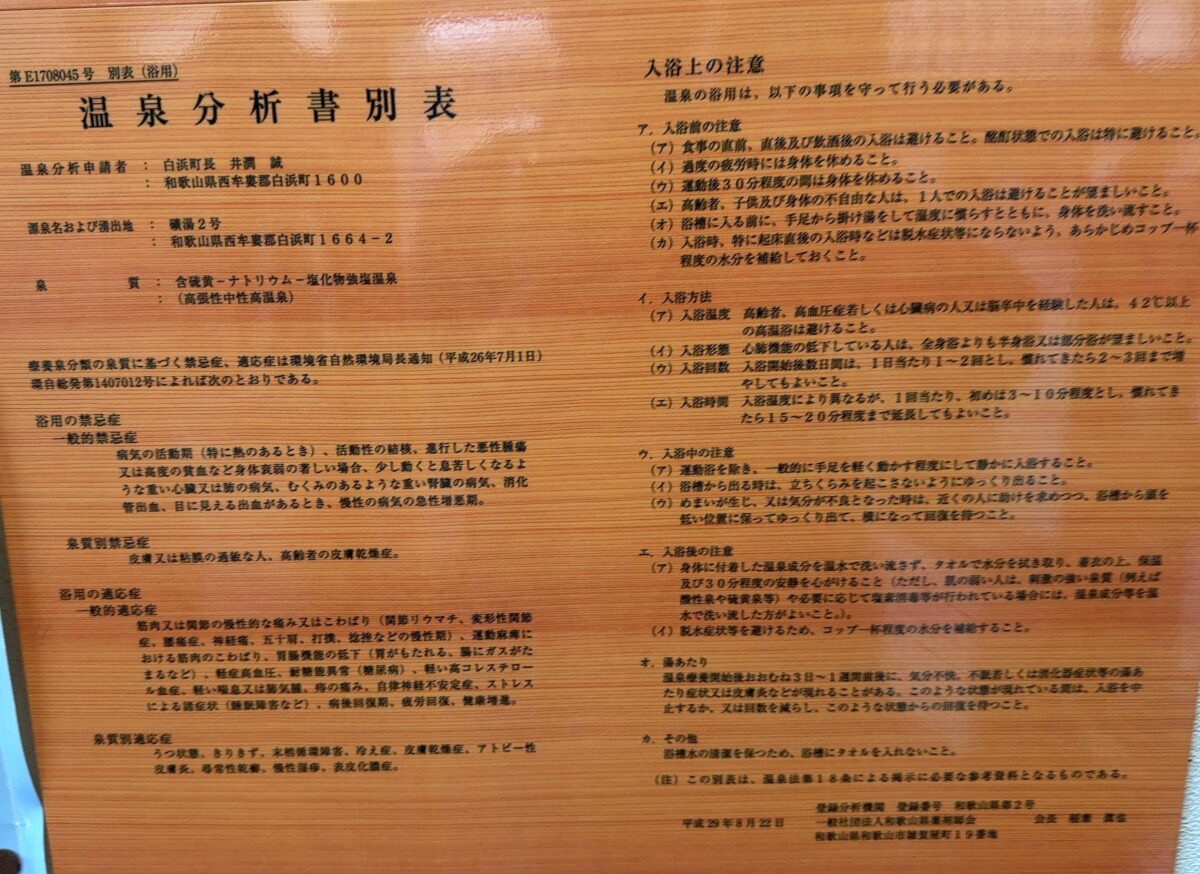 第E1708045号 別表（浴用）
温泉分析書別表
温泉分析申請者 ： 白浜町長 井澗 誠
： 和歌山県西牟婁郡白浜町１６００
源泉名および湧出地 ： 礦湯２号
： 和歌山県西牟婁郡白浜町１６６４－２
泉質 ： 含硫黄－ナトリウム－塩化物強塩温泉
： （高張性中性高温泉）
療養泉分類の泉質に基づく禁忌症、適応症は環境省自然環境局長通知（平成26年7月1日）
環自総発第1407012号によれば次のとおりである。
浴用の禁忌症
一般的禁忌症
病気の活動期（特に熱のあるとき）、活動性の結核、進行した悪性腫瘍
又は高度の貧血など身体衰弱の著しい場合、少し動くと息苦しくなるよ
うな重い心臓又は肺の病気、むくみのあるような重い腎臓の病気、消化
管出血、目に見える出血があるとき、慢性の病気の急性増悪期。
泉質別禁忌症
皮膚又は粘膜の過敏な人、高齢者の皮膚乾燥症。
浴用の適応症
一般的適応症
筋肉又は関節の慢性的な痛み又はこわばり（関節リウマチ、変形性関節
症、腰痛症、神経痛、五十肩、打撲、捻挫などの慢性期）、運動麻痺に
おける筋肉のこわばり、胃腸機能の低下（胃がもたれる、腸にガスがた
まるなど）、軽症高血圧、耐糖能異常（糖尿病）、軽い高コレステロー
ル血症、軽い喘息又は肺気腫、痔の痛み、自律神経不安定症、ストレス
による諸症状（睡眠障害など）、病後回復期、疲労回復、健康増進。
泉質別適応症
うつ状態、きりきず、末梢循環障害、冷え症、皮膚乾燥症、アトピー性
皮膚炎、尋常性乾癬、慢性湿疹、表皮化膿症。
入浴上の注意
温泉の浴用は、以下の事項を守って行う必要がある。
ア．入浴前の注意
（ア）食事の直前、直後及び飲酒後の入浴は避けること。酩酊状態での入浴は特に避けること。
（イ）過度の疲労時には身体を休めること。
（ウ）運動後３０分程度の間は身体を休めること。
（エ）高齢者、子供及び身体の不自由な人は、１人での入浴は避けることが望ましいこと。
（オ）浴槽に入る前に、手足から掛け湯をして温度に慣らすとともに、身体を洗い流すこと。
（カ）入浴時、特に起床直後の入浴時などは脱水症状等にならないよう、あらかじめコップ一杯
程度の水分を補給しておくこと。
イ．入浴方法
（ア）入浴温度 高齢者、高血圧症若しくは心臓病の人又は脳卒中を経験した人は、４２℃以上
の高温浴は避けること。
（イ）入浴形態 心肺機能の低下している人は、全身浴よりも半身浴又は部分浴が望ましいこと。
（ウ）入浴回数 入浴開始後数日間は、１日当たり１～２回とし、慣れてきたら２～３回まで増
やしてもよいこと。
（エ）入浴時間 入浴温度により異なるが、１回当たり、初めは３～１０分程度とし、慣れてき
たら１５～２０分程度まで延長してもよいこと。
ウ．入浴中の注意
（ア）運動浴を除き、一般的に手足を軽く動かす程度にして静かに入浴すること。
（イ）浴槽から出る時は、立ちくらみを起こさないようにゆっくり出ること。
（ウ）めまいが生じ、又は気分が不良となった時は、近くの人に助けを求めつつ、浴槽から頭を
低い位置に保ってゆっくり出て、横になって回復を待つこと。
エ．入浴後の注意
（ア）身体に付着した温泉成分を温水で洗い流さず、タオルで水分を拭き取り、着衣の上、保温
及び３０分程度の安静を心がけること（ただし、肌の弱い人は、刺激の強い泉質（例えば
酸性泉や硫黄泉等）や必要に応じて塩素消毒等が行われている場合には、温泉成分等を温
水で洗い流した方がよいこと。）。
（イ）脱水症状等を避けるため、コップ一杯程度の水分を補給すること。
オ．湯あたり
温泉療養開始後おおむね３日～１週間前後に、気分不快、不眠若しくは消化器症状等の湯あ
たり症状又は皮膚炎などが現れることがある。このような状態が現れている間は、入浴を中
止するか、又は回数を減らし、このような状態からの回復を待つこと。
カ．その他
浴槽水の清潔を保つため、浴槽にタオルを入れないこと。
（注）この別表は、温泉法第１８条による掲示に必要な参考資料となるものである。
登録分析機関 登録番号 和歌山県第２号
平成２９年８月２２日 一般社団法人和歌山県薬剤師会 会長 稲葉 眞也
和歌山県和歌山市雑賀屋町１９番地